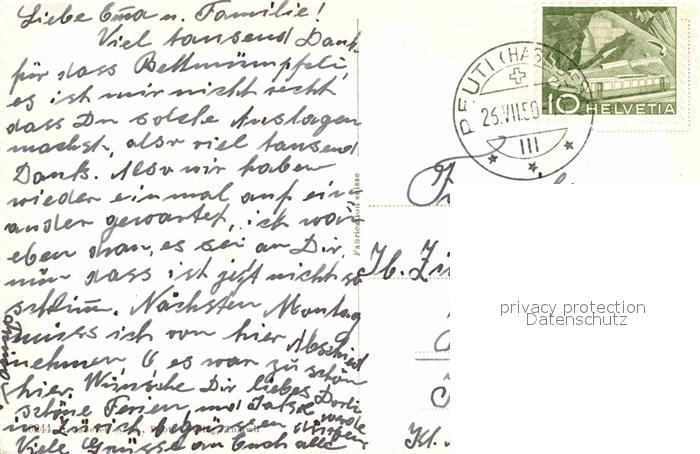 Liebe Emma u. Familie!
Viel tausend Dank
für dass Bettmümpfeli,
es ist mir nicht recht
dass Du solche Auslagen
machst, also viel tausend
Dank. Also wir haben
wieder einmal auf ein
ander gewartet, ich war
eben dran, es sei an Dir,
nur dass ist jetzt nicht so
schlimm. Nächsten Montag
muss ich von hier Abschied
nehmen, es war zu schön
hier. Wünsche Dir liebes Dorli
schöne Ferien und
in Zürich begrüssen
Viele Grüsse an Euch alle
Fabrication suisse
REUTI (HASLIBERG)
26.VII.50
III
10 HELVETIA
Fr
Hb. Zü
Kl.
privacy protection
Datenschutz